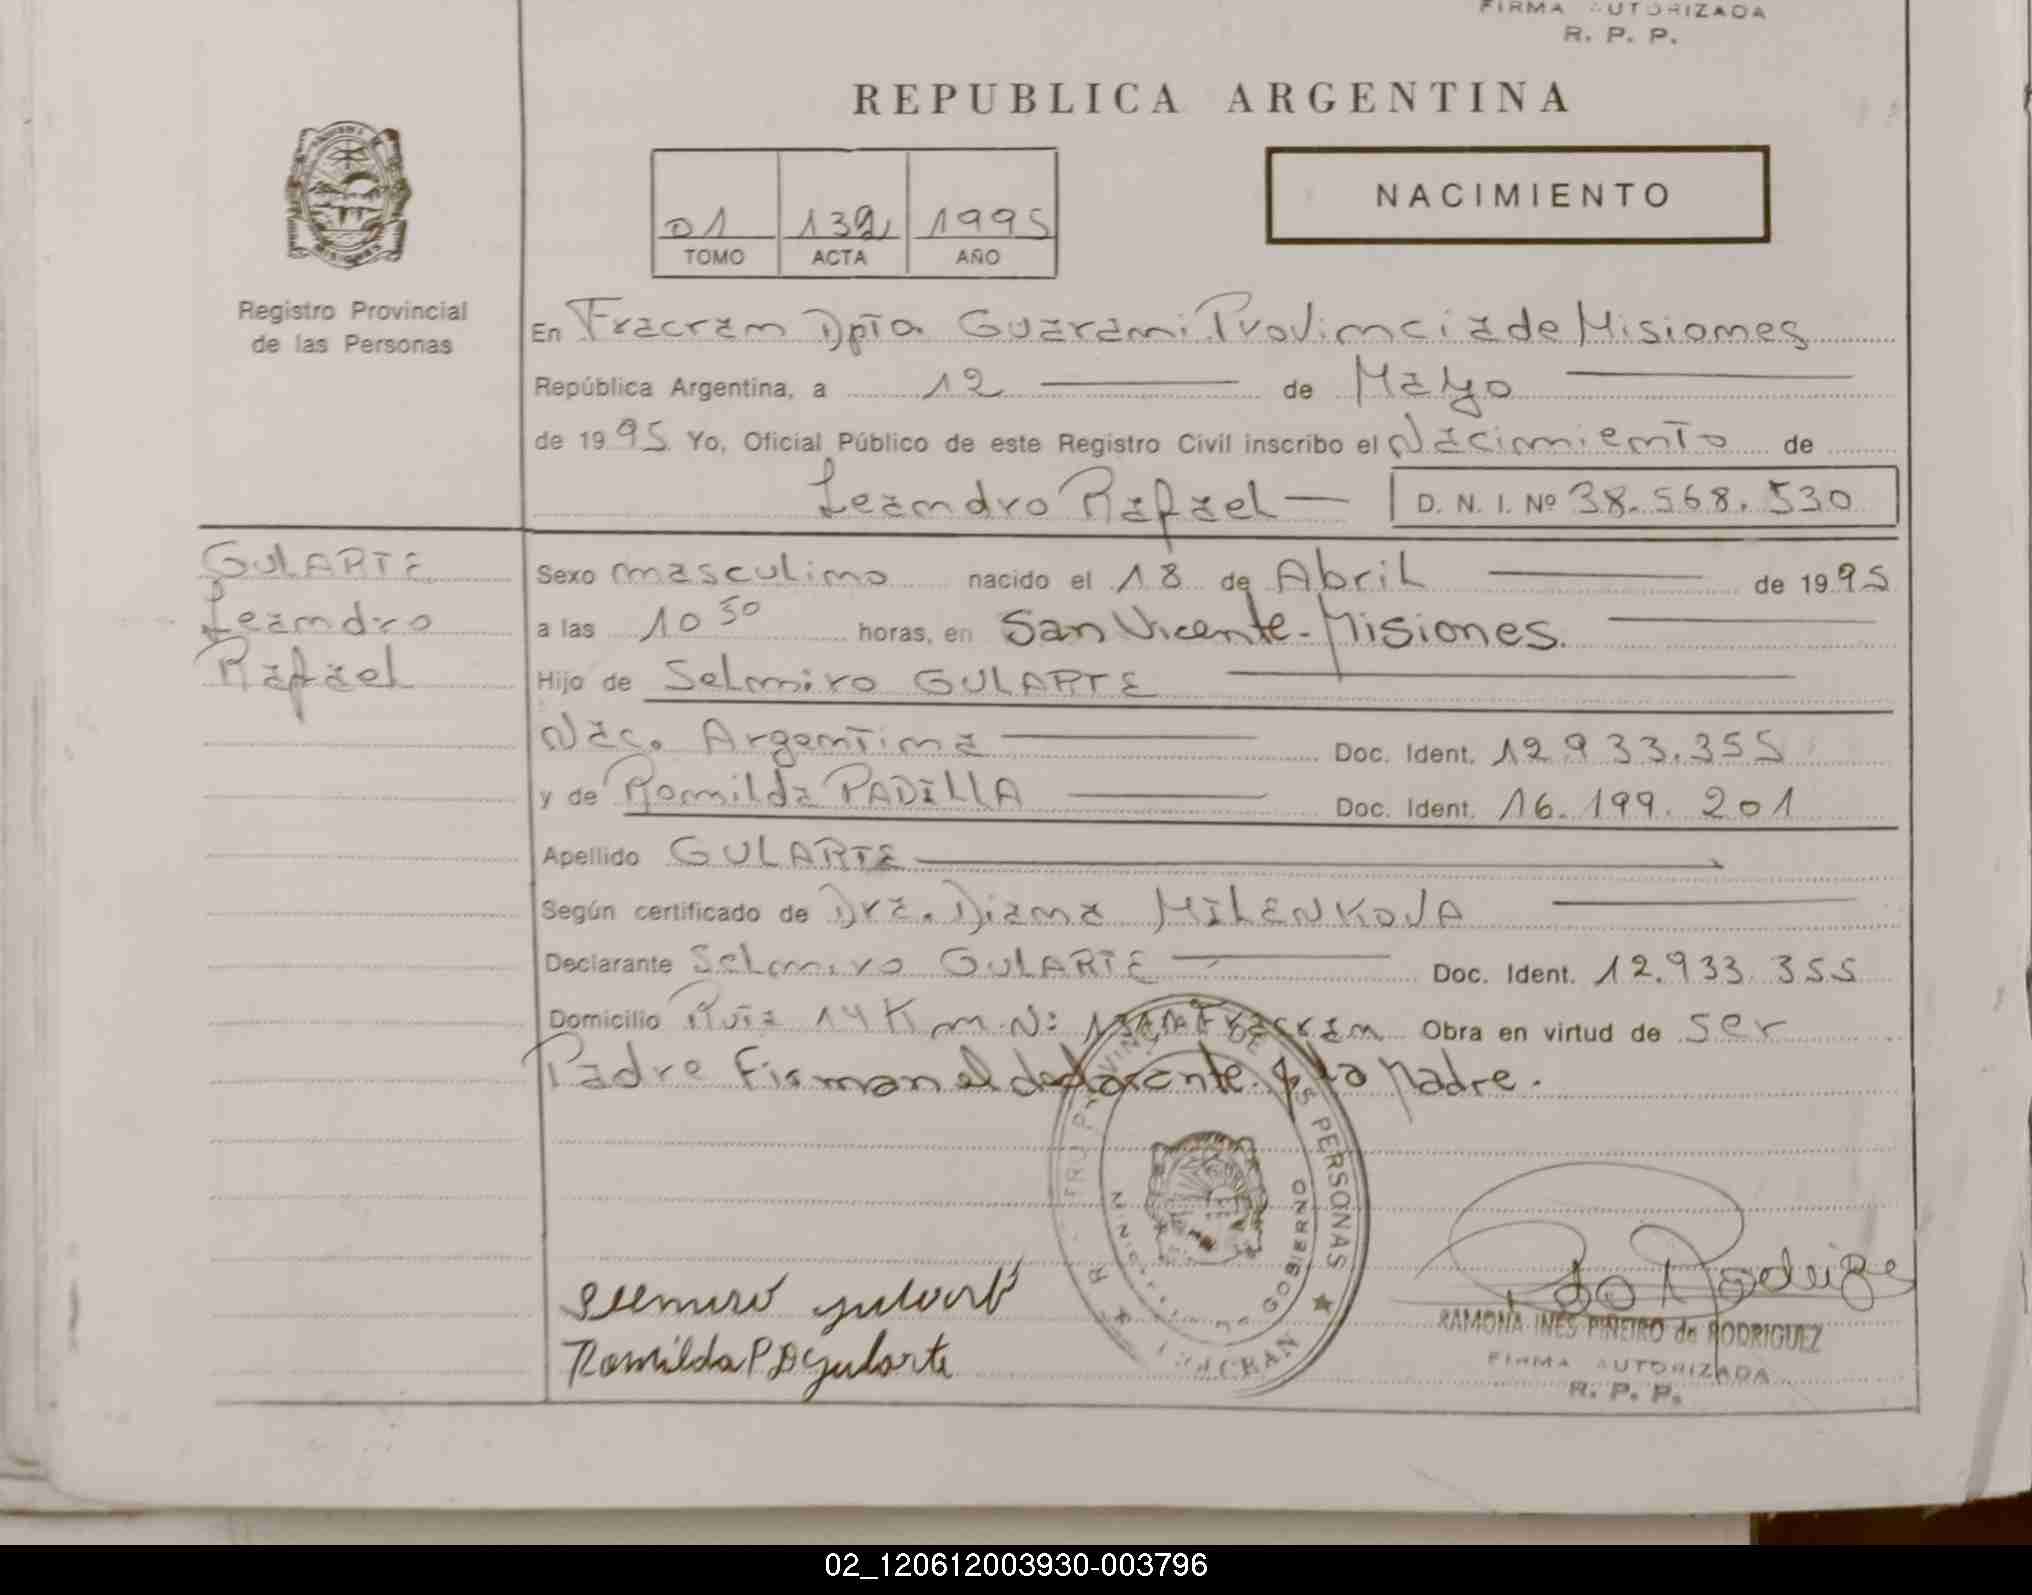 FIRMA AUTORIZADA
R. P. P.
REPUBLICA ARGENTINA
NACIMIENTO
01 132 1995
TOMO ACTA AÑO
Registro Provincial
de las Personas
En Fracram Dpto. Guarani Provincia de Misiones
República Argentina, a 12 de Mayo
de 1995 Yo, Oficial Público de este Registro Civil inscribo el Nacimiento de
Leandro Rafael D. N. I. Nº 38.568.530
GULARTE
Leandro
Rafael
Sexo masculino nacido el 18 de Abril de 1995
a las 10 50 horas, en San Vicente - Misiones.
Hijo de Selmiro GULARTE
Nac. Argentina Doc. Ident. 12.933.355
y de Romilda PADILLA Doc. Ident. 16.199.201
Apellido GULARTE
Según certificado de Dra. Diana MILENKOVA
Declarante Selmiro GULARTE Doc. Ident. 12.933.355
Domicilio Ruta 14 Km. Nº Fracram Obra en virtud de ser
Padre Firman el declarante y la Madre.
DE LAS PERSONAS
GOBIERNO
FRACRAN
Selmiro Gularte
Romilda P D Gularte
RAMONA INES PIÑEIRO de RODRIGUEZ
FIRMA AUTORIZADA
R. P. P.
02_120612003930-003796